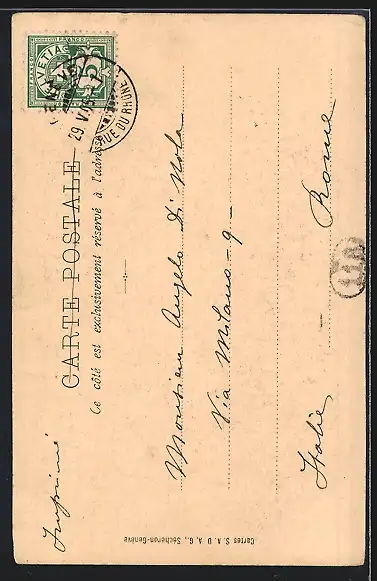 CARTE POSTALE
Ce côté est exclusivement réservé à l'adresse
Imprimé
Monsieur Angelo Di Nola
Via Milano - 9 -
Rome
Italie
Cartes S. A. D. A. G., Sécheron-Genève
HELVETIA
FRANCO
5
29 V
RUE DU RHÔNE